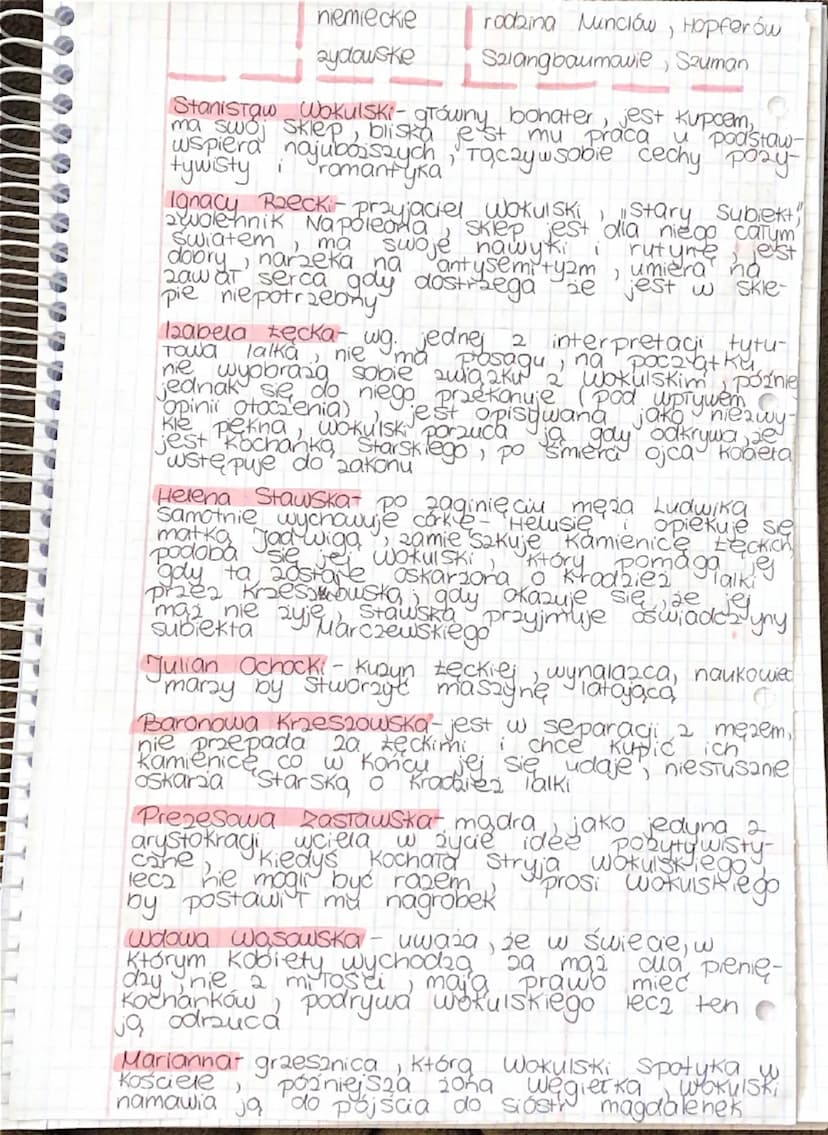 niemieckie rodzina Minclów, Hopferów
żydowskie Szlangbaumowie, Szuman
Stanisław Wokulski- główny bohater, jest kupcem,
ma swój sklep, bliska jest mu praca u podstaw-
wspiera najuboższych, łączy w sobie cechy pozy-
tywisty i romantyka
Ignacy Rzecki- przyjaciel Wokulski, "stary subiekt",
zwolennik Napoleona, sklep jest dla niego całym
światem, ma swoje nawyki i rutynę, jest
dobry, narzeka na antysemityzm, umiera na
zawał serca gdy dostrzega że jest w skle-
pie niepotrzebny
Izabela Łęcka- wg. jednej z interpretacji tytu-
łowa lalka, nie ma posagu, na początku
nie wyobraża sobie związku z Wokulskim, późnie
jednak się do niego przekonuje (pod wpływem
opinii otoczenia), jest opisywana jako niezwy-
kle piękna, Wokulski porzuca ją gdy odkrywa, że
jest kochanką Starskiego, po śmierci ojca kobieta
wstępuje do zakonu
Helena Stawska- po zaginięciu męża Ludwika
samotnie wychowuje córkę- Helusię i opiekuje się
matką Jadwigą, zamieszkuje kamienicę Łęckich
podoba się jej Wokulski, który pomaga jej
gdy ta zostaje oskarżona o kradzież lalki
przez Krzeszowską, gdy okazuje się, że jej
mąż nie żyje, Stawska przyjmuje oświadczyny
subiekta Marczewskiego
Julian Ochocki- kuzyn Łęckiej, wynalazca, naukowiec
marzy by stworzyć maszynę latającą
Baronowa Krzeszowska- jest w separacji z mężem,
nie przepada za Łęckimi i chce kupić ich
kamienicę co w końcu jej się udaje, niesłusznie
oskarża Starską o kradzież lalki
Prezesowa Zasławska- mądra, jako jedyna z
arystokracji wciela w życie idee pozytywisty-
czne, kiedyś kochała stryja Wokulskiego,
lecz nie mogli być razem, prosi Wokulskiego
by postawił mu nagrobek
Wdowa Wąsowska- uważa, że w świecie, w
którym kobiety wychodzą za mąż dla pienię-
dzy, nie z miłości, mają prawo mieć
kochanków, podrywa Wokulskiego lecz ten
ją odrzuca
Marianna- grzesznica, którą Wokulski spotyka w
kościele, późniejsza żona Węgiełka, Wokulski
namawia ją do pójścia do sióstr magdalenek